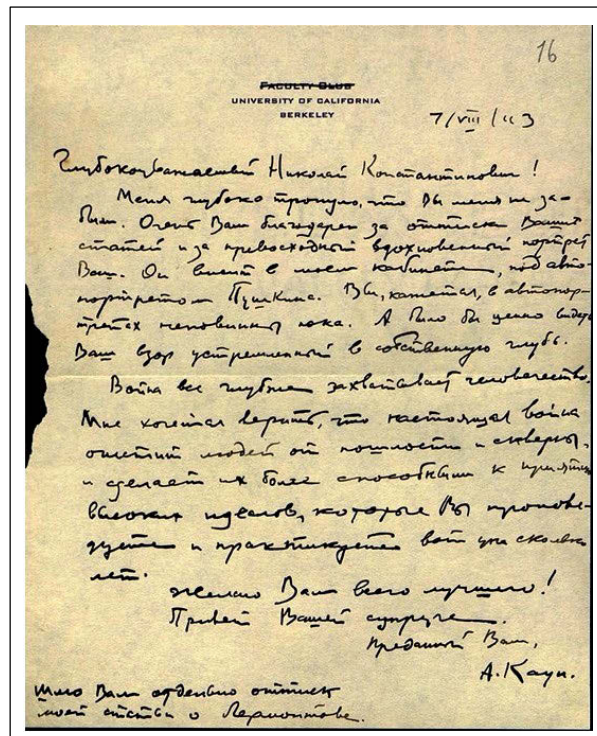 16
FACULTY CLUB
UNIVERSITY OF CALIFORNIA
BERKELEY
7/VIII/43
Глубокоуважаемый Николай Константинович!
Меня глубоко тронуло, что Вы меня не за-
были. Очень Вам благодарен за оттиски Ваших
статей и за превосходный вдохновенный портрет
Ваш. Он висит в моем кабинете, под авто-
портретом Пушкина. Вы, кажется, в автопор-
третах неповинны пока. А было бы ценно видеть
Ваш взор устремленный в собственную глубь.
Война все глубже захватывает человечество.
Мне хочется верить, что настоящая война
очистит людей от пошлости и скверны,
и сделает их более способными к принятию
высоких идеалов, которые Вы пропове-
дуете и практикуете вот уже сколько
лет.
Желаю Вам всего лучшего!
Привет Вашей супруге.
Преданный Вам,
А. Каун.
Шлю Вам отдельно оттиск
моей статьи о Лермонтове.